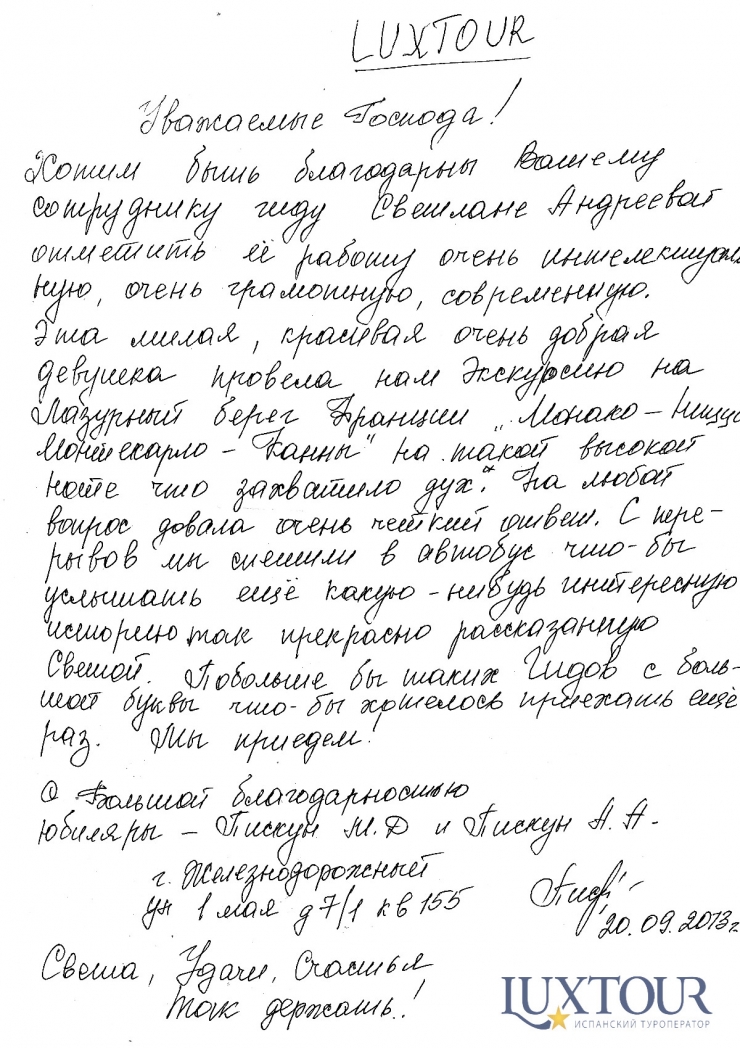 LUXTOUR
Уважаемые Господа!
Хотим быть благодарны Вашему
сотруднику гиду Светлане Андреевой
отметить её работу очень интелектуаль
ную, очень грамотную, современную.
Эта милая, красивая очень добрая
девушка провела нам Экскурсию на
Лазурный берег Франции „Монако – Ницца
Монтекарло – Канны" на такой высокой
ноте что захватило дух". На любой
вопрос довала очень четкий ответ. С пере-
рывов мы спешили в автобус что-бы
услышать ещё какую-нибудь интересную
историю так прекрасно рассказанную
Светой. Побольше бы таких Гидов с боль-
шой буквы что-бы хотелось приехать ещё
раз. Мы приедем!
С Большой благодарностью
юбиляры – Пискун М.Д и Пискун А.А-
г. Железнодорожный
ул 1 мая д 7/1 кв 155
20.09.2013г
Света, Удачи, Счастья
Так держать!
LUXTOUR
ИСПАНСКИЙ ТУРОПЕРАТОР